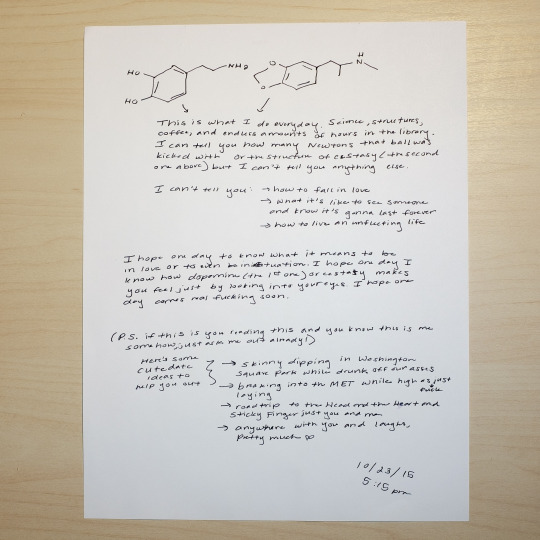 HO
HO
NH2
O
O
H
N
This is what I do everyday. Science, structures,
coffee, and endless amounts of hours in the library.
I can tell you how many Newtons that ball was
kicked with or the structure of ecstasy (the second
one above) but I can't tell you anything else.
I can't tell you: → how to fall in love
→ what it's like to see someone
and know it's gonna last forever
→ how to live an unflecting life
I hope one day to know what it means to be
in love or to even be in
I hope one day I
know how dopamine (the 1st one) or ecstasy makes
you feel just by looking into your eyes. I hope one
day comes real fucking soon.
(P.S. if this is you reading this and you know this is me
somehow, just ask me out already!)
Here's some
cute date
ideas to
help you out
→ skinny dipping in Washington
Square Park while drunk off our asses
→ breaking into the MET while high as just
laying
→ roadtrip to the Head and the Heart and
Sticky Finger just you and me
→ anywhere with you and laughs,
pretty much ∞
10/23/15
5:15 pm